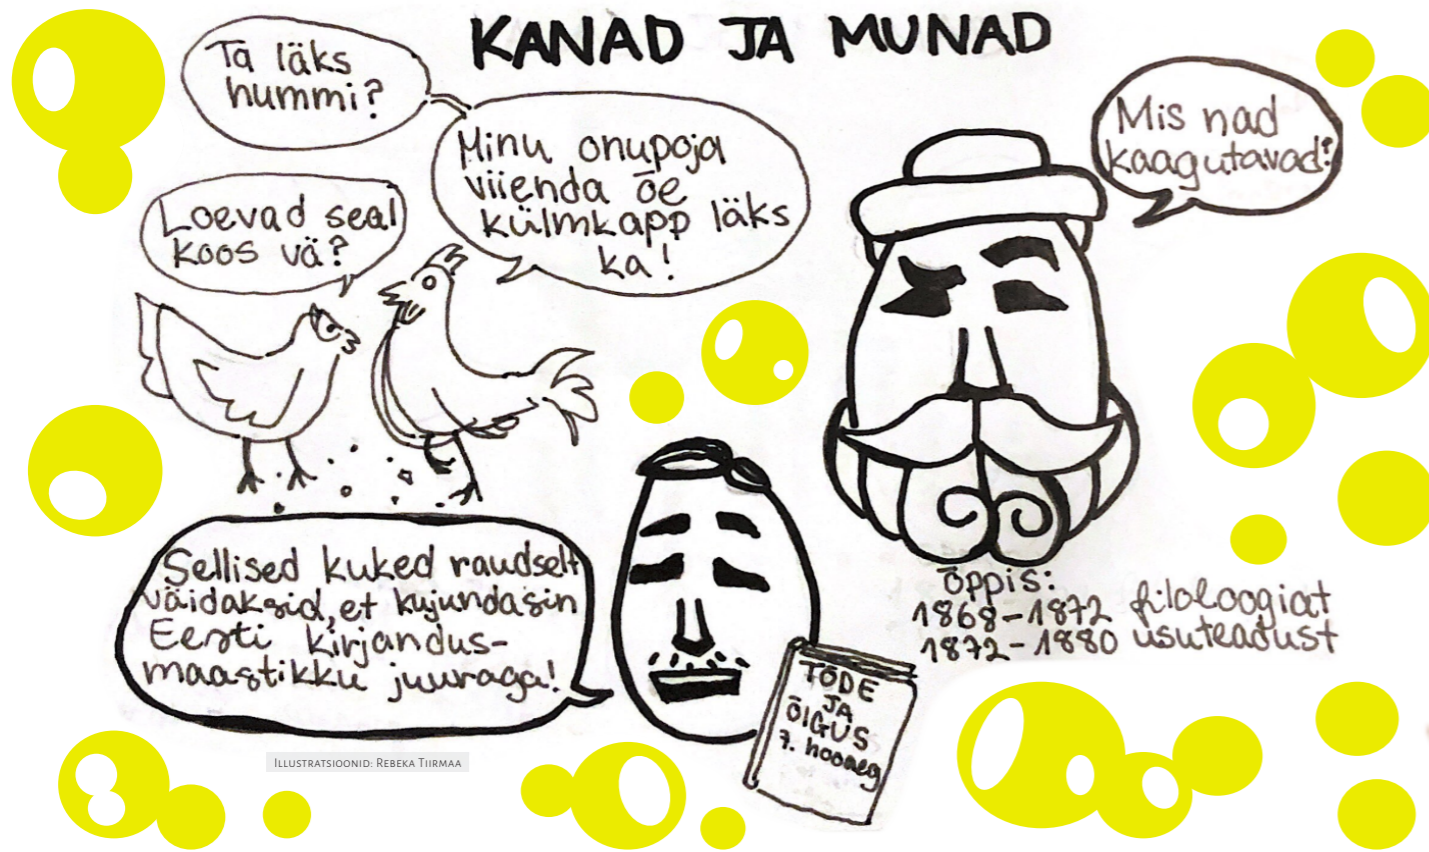 KANAD JA MUNAD
Ta läks
hummi?
Minu onupoja
viienda õe
külmkapp läks
ka!
Loevad seal
koos vä?
Mis nad
kaagutavad?
Sellised kuked raudselt
väidaksid, et kujundasin
Eesti kirjandus-
maastikku juuraga!
TÕDE
JA
ÕIGUS
7. hooaeg
õppis:
1868-1872 filoloogiat
1872-1880 usuteadust
Illustratsioonid: Rebeka Tiirmaa